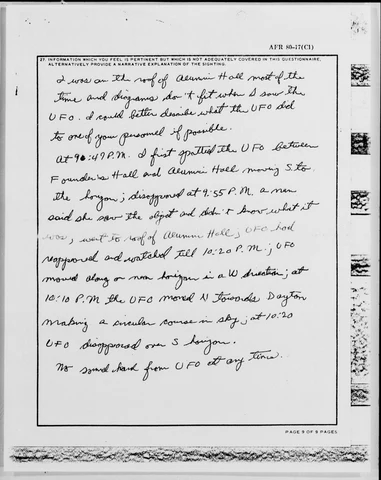 AFR 80-17(C1)
27. INFORMATION WHICH YOU FEEL IS PERTINENT BUT WHICH IS NOT ADEQUATELY COVERED IN THIS QUESTIONNAIRE.
ALTERNATIVELY PROVIDE A NARRATIVE EXPLANATION OF THE SIGHTING.
I was on the roof of Alumni Hall most of the
time and diagrams don't fit when I saw the
UFO. I could better describe what the UFO did
to one of your personnel if possible.
At 9:49 P.M. I first spotted the UFO between
Founder's Hall and Alumni Hall moving S. to
the horizon; disappeared at 9:55 P.M. a
said she saw the object and didn't know what it
was; went to roof of Alumni Hall; UFO had
reappeared and watched till 10:20 P.M.; UFO
moved along on horizon in a W direction; at
10:10 P.M the UFO moved N towards Dayton
making a circular course in sky; at 10:20
UFO disappeared over S horizon.
No sound heard from UFO at any time.
PAGE 9 OF 9 PAGES